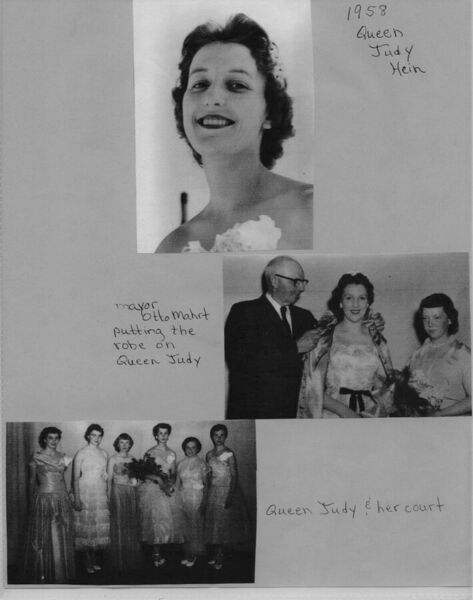 1958
Queen
Judy
Hein
mayor
Otto Mahrt
putting the
robe on
Queen Judy
Queen Judy & her court